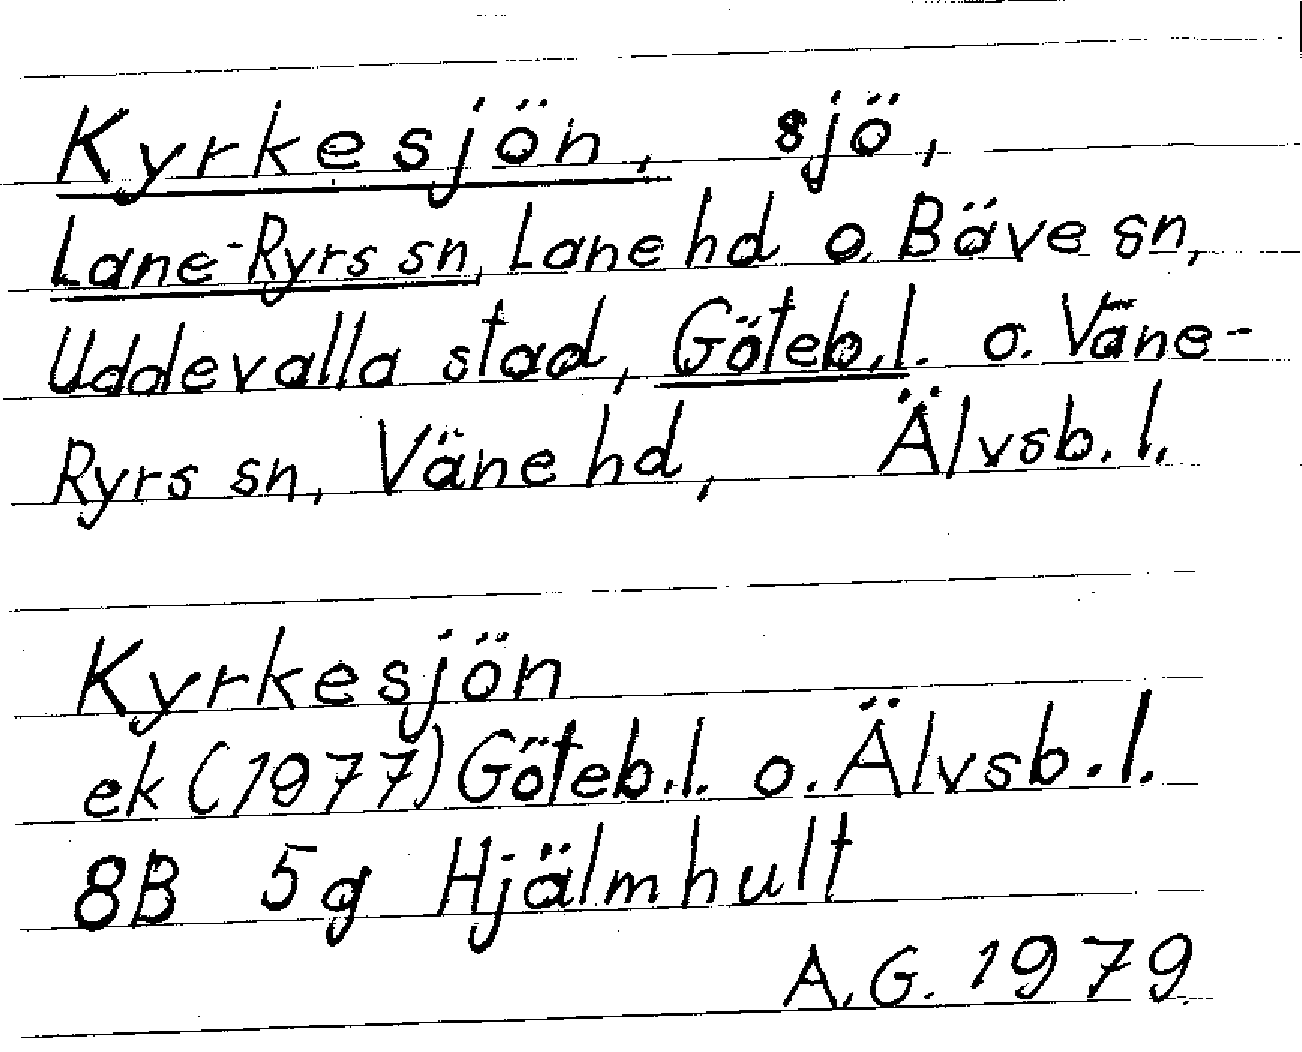 Kyrkesjön, sjö,
Lane-Ryrs sn, Lane hd o. Bäve sn,
Uddevalla stad, Göteb.l. o. Väne-
Ryrs sn, Väne hd, Älvsb.l.
Kyrkesjön
ek (1977) Göteb.l. o. Älvsb.l.
8B 5g Hjälmhult
A.G. 1979